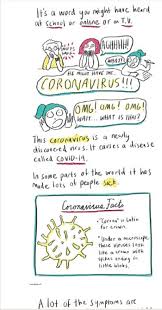 It's a word you might have heard
at school or online or on T.V.
AGHHHH!
CORONAVIRUS!!!
OMG! OMG! OMG!
WAIT... WHAT IS THAT?
This coronavirus is a newly
discovered virus. It causes a disease
called COVID-19.
In some parts of the world it has
made lots of people sick.
Coronavirus Facts
"Corona" is Latin
for crown.
Under a microscope,
these viruses look
like a crown with
spikes ending in
little blobs.
A lot of the symptoms are